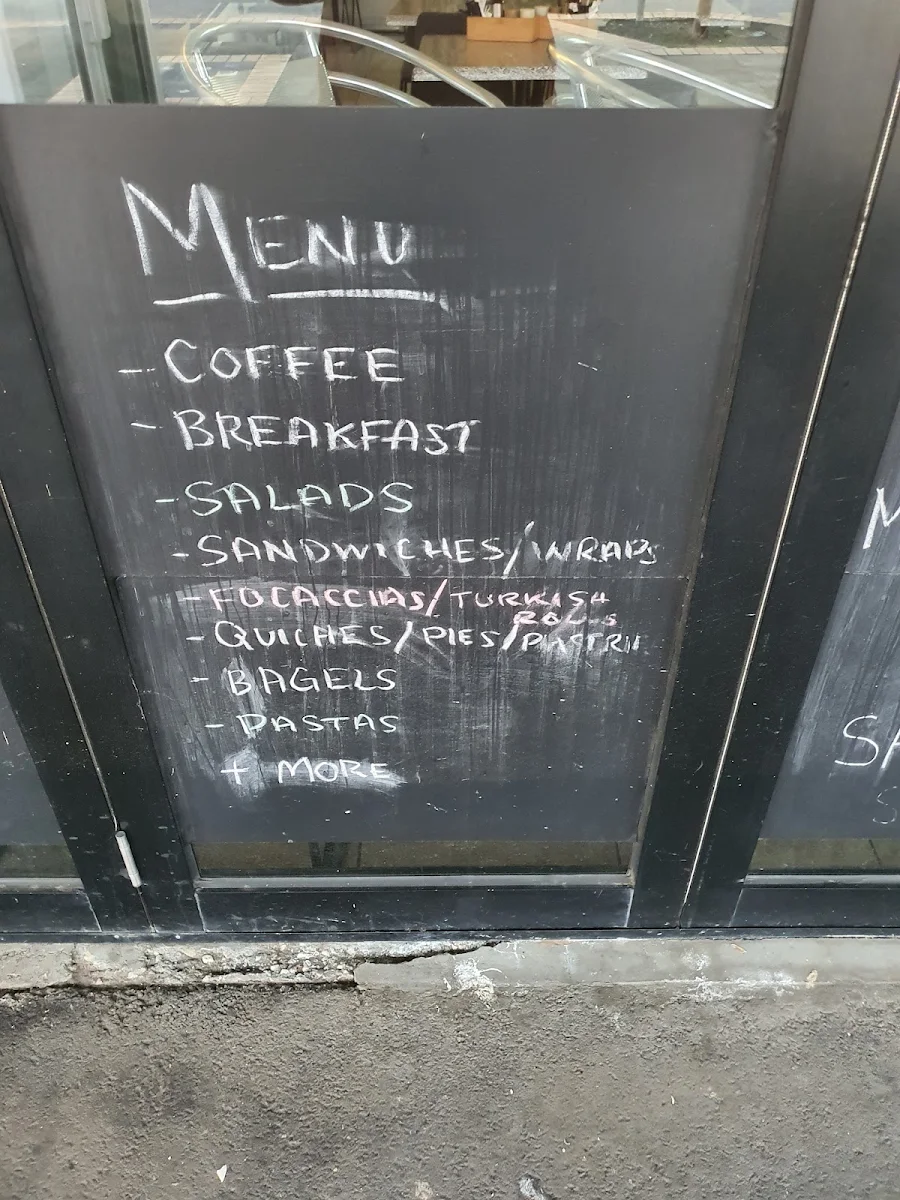 MENU
- COFFEE
- BREAKFAST
- SALADS
- SANDWICHES/WRAPS
- FOCACCIAS/TURKISH
ROLLS
- QUICHES/PIES/
- BAGELS
- PASTAS
+ MORE
M
SA
S